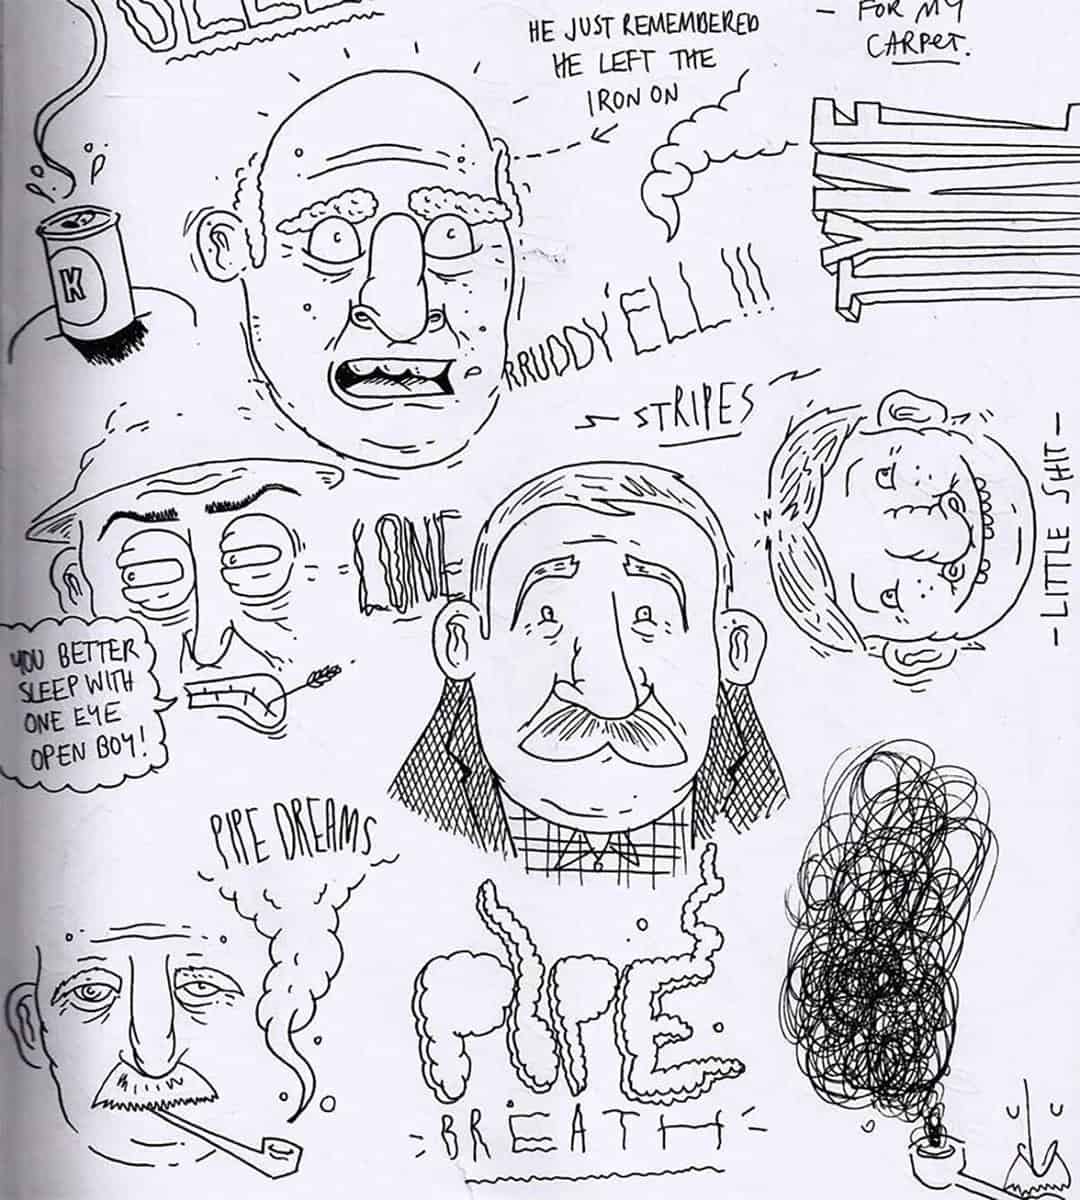 HE JUST REMEMBERED
HE LEFT THE
IRON ON
- FOR MY
CARPET.
K
RRUDDY'ELL!!!
~ STRIPES ~
LONE
- LITTLE SHIT -
YOU BETTER
SLEEP WITH
ONE EYE
OPEN BOY!
PIPE DREAMS
PIPE
BREATH